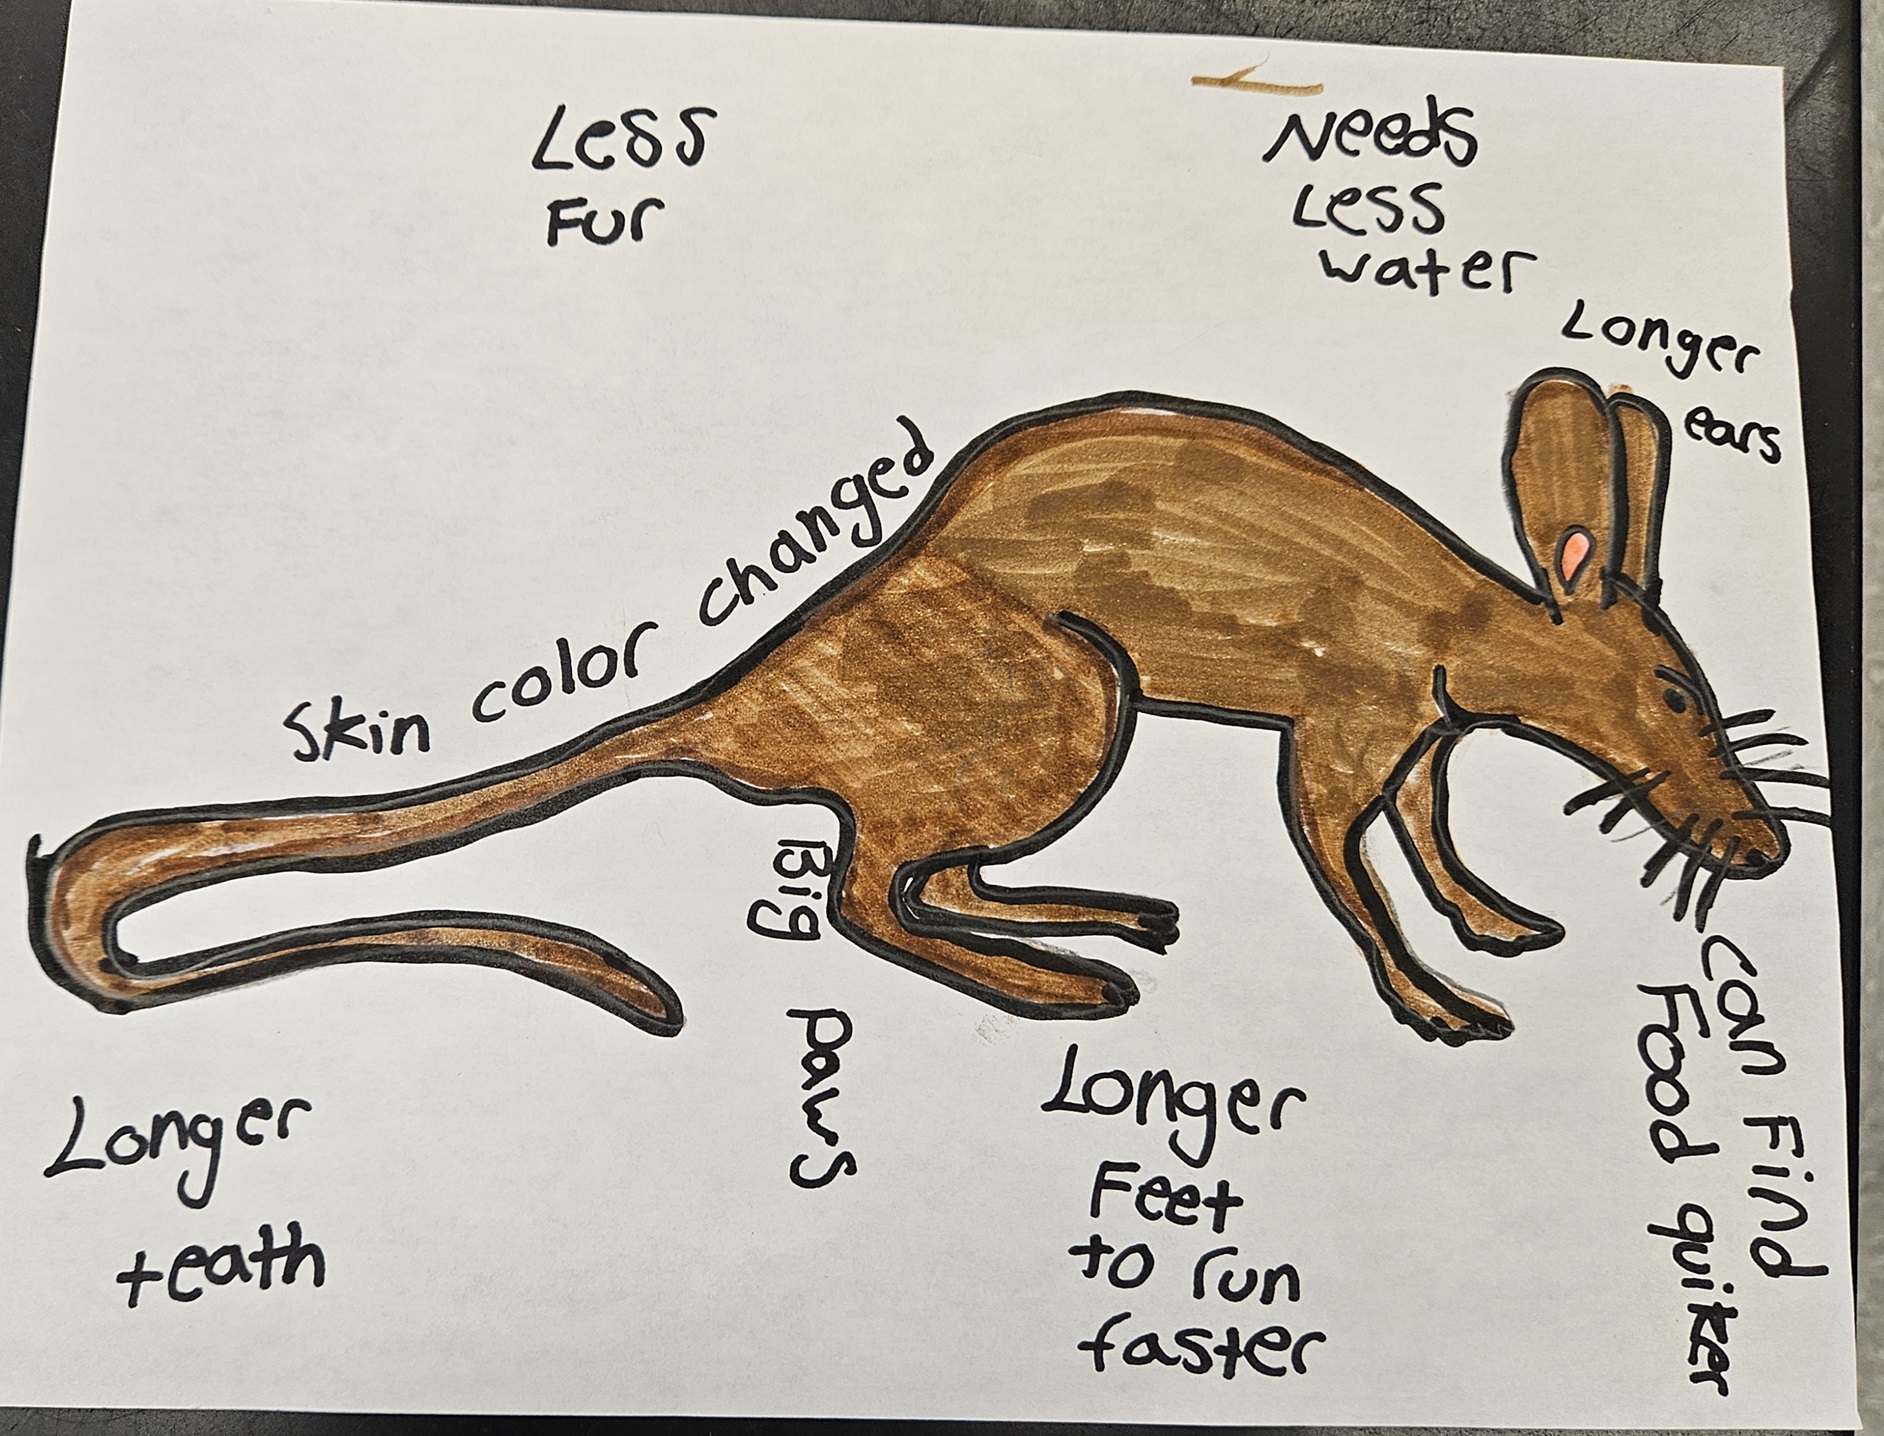 Less
Fur
Needs
Less
water
Longer
ears
Skin color changed
Big paws
Longer
teath
Longer
Feet
to run
faster
can Find
Food quiker